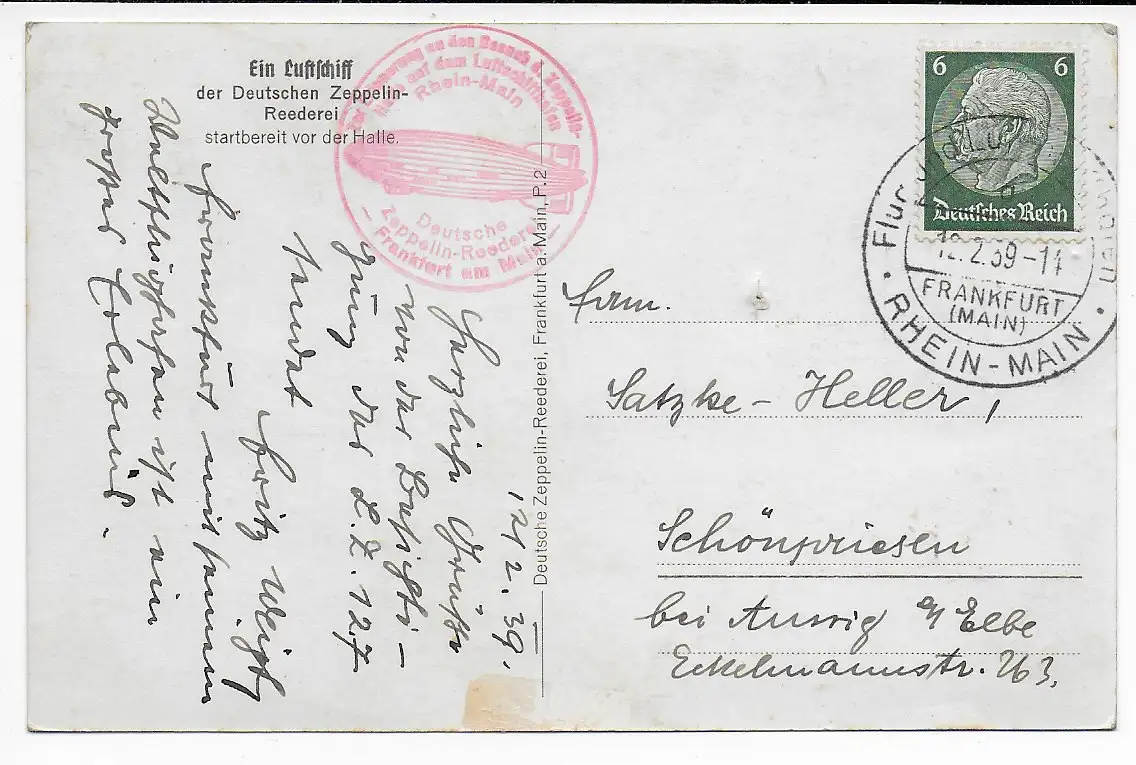 Ein Luftschiff
der Deutschen Zeppelin-
Reederei
startbereit vor der Halle.
Zur Erinnerung an den Besuch d. Zeppelin-
auf dem Luftschiffhafen
Rhein-Main
Deutsche
Zeppelin-Reederei
- Frankfurt am Main -
Deutsche Zeppelin-Reederei, Frankfurt a. Main, P. 2
6 6
Deutsches Reich
Flug
12.2.39-11
FRANKFURT
(MAIN)
· RHEIN-MAIN ·
12/2.39.
Herzliche Grüße
von der Besichti-
gung des L.Z. 127
sendet
Fritz Weigt,
Frankfurt mit seinen
ist ein
großes Erlebnis.
Fam.
Satzke-Heller,
Schönpriesen
bei Aussig a/Elbe
Eckelmannstr. 263.